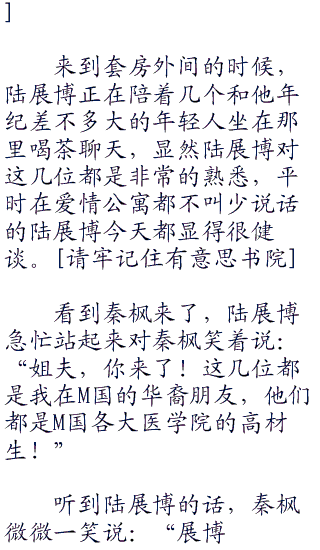 ]
来到套房外间的时候，
陆展博正在陪着几个和他年
纪差不多大的年轻人坐在那
里喝茶聊天，显然陆展博对
这几位都是非常的熟悉，平
时在爱情公寓都不叫少说话
的陆展博今天都显得很健
谈。[请牢记住有意思书院]
看到秦枫来了，陆展博
急忙站起来对秦枫笑着说：
“姐夫，你来了！这几位都
是我在M国的华裔朋友，他们
都是M国各大医学院的高材
生！”
听到陆展博的话，秦枫
微微一笑说：“展博